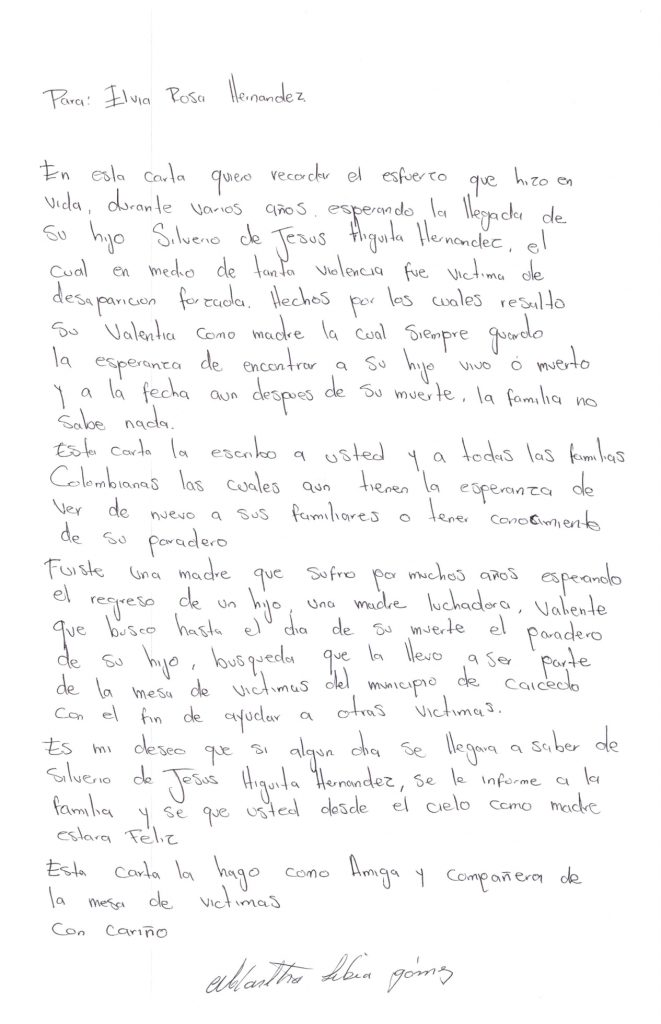 Para: Ilvia Rosa Hernandez
En esta carta quiero recordar el esfuerzo que hizo en
vida, durante varios años, esperando la llegada de
su hijo Silverio de Jesus Higuita Hernandez, el
cual en medio de tanta violencia fue victima de
desaparicion forzada. Hechos por los cuales resulto
su Valentia como madre la cual siempre guardo
la esperanza de encontrar a su hijo vivo ó muerto
y a la fecha aun despues de su muerte, la familia no
sabe nada.
Esta carta la escribo a usted y a todas las familias
Colombianas las cuales aun tienen la esperanza de
ver de nuevo a sus familiares o tener conocimiento
de su paradero
Fuiste una madre que sufrio por muchos años esperando
el regreso de un hijo, una madre luchadora, Valiente
que busco hasta el dia de su muerte el paradero
de su hijo, busqueda que la llevo a ser parte
de la mesa de victimas del municipio de Caicedo
con el fin de ayudar a otras victimas.
Es mi deseo que si algun dia se llegara a saber de
Silverio de Jesus Higuita Hernandez, se le informe a la
familia y se que usted desde el cielo como madre
estara Feliz
Esta carta la hago como Amiga y compañera de
la mesa de victimas
Con cariño
Martha libia gómez